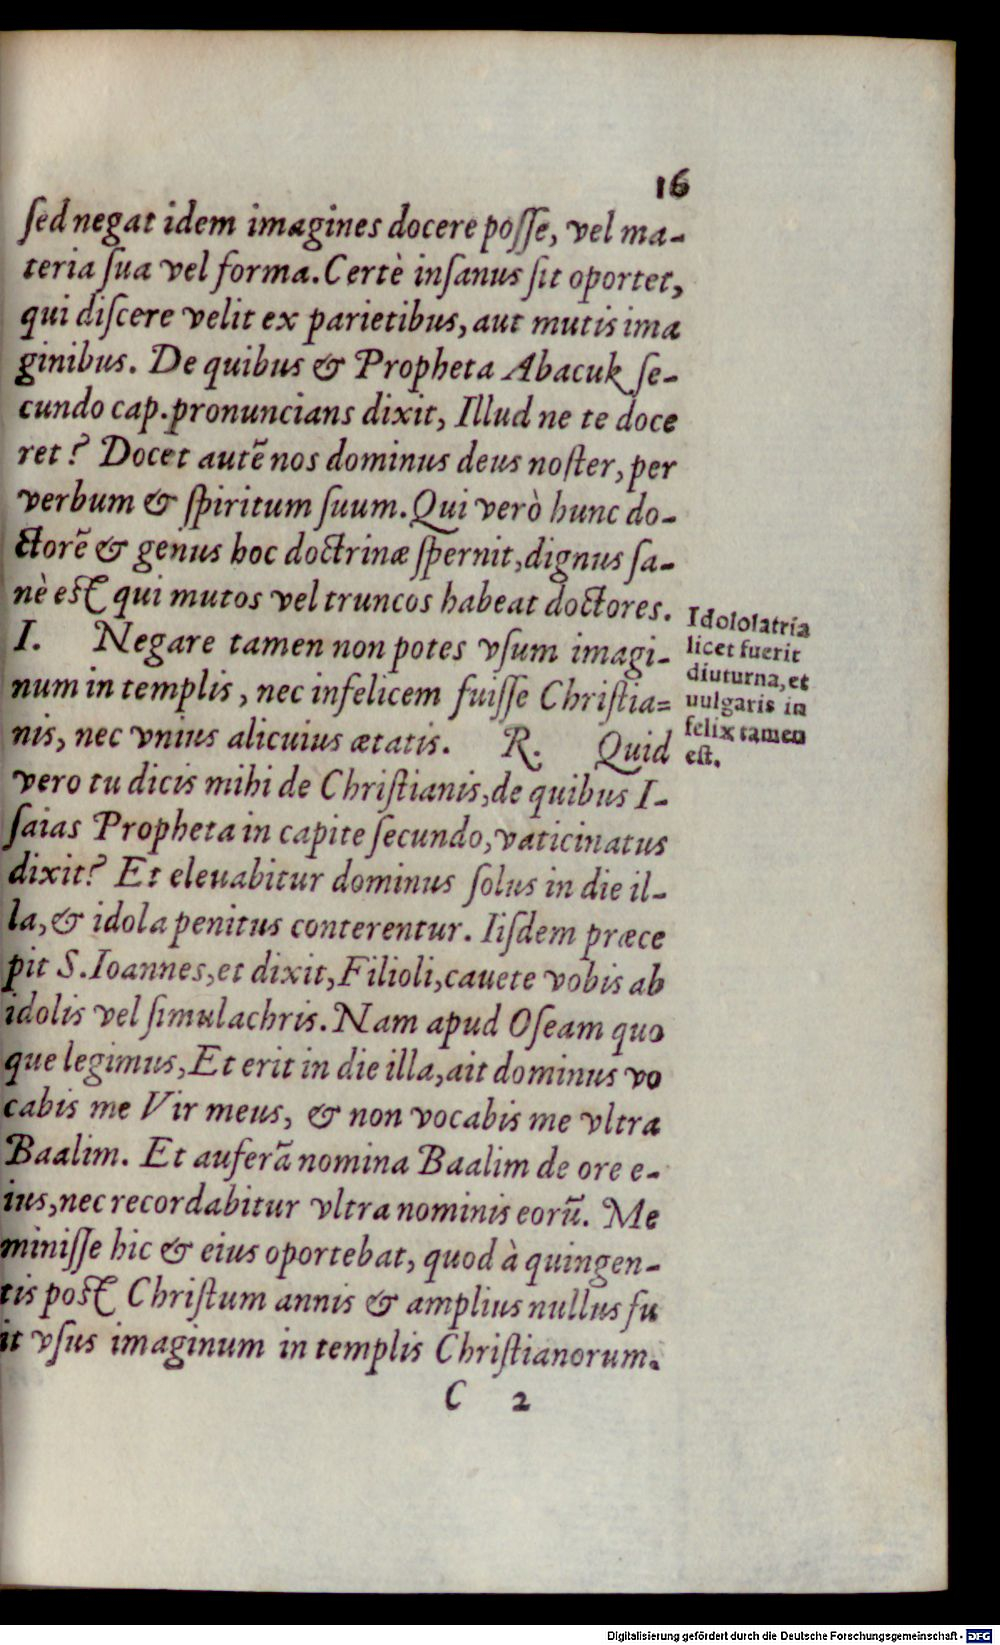 16
ſed negat idem imagines docere poſſe, vel ma-
teria ſua vel forma. Certè inſanus ſit oportet,
qui diſcere velit ex parietibus, aut mutis ima
ginibus. De quibus & Propheta Abacuk ſe-
cundo cap. pronuncians dixit, Illud ne te doce
ret? Docet autẽ nos dominus deus noſter, per
verbum & ſpiritum ſuum. Qui verò hunc do-
ctorẽ & genus hoc doctrinæ ſpernit, dignus ſa-
nè eſt qui mutos vel truncos habeat doctores.
I. Negare tamen non potes vſum imagi-
num in templis, nec infelicem fuiſſe Chriſtia=
nis, nec vnius alicuius ætatis. R. Quid
vero tu dicis mihi de Chriſtianis, de quibus I-
ſaias Propheta in capite ſecundo, vaticinatus
dixit? Et eleuabitur dominus ſolus in die il-
la, & idola penitus conterentur. Iiſdem præce
pit S. Ioannes, et dixit, Filioli, cauete vobis ab
idolis vel ſimulachris. Nam apud Oſeam quo
que legimus, Et erit in die illa, ait dominus vo
cabis me Vir meus, & non vocabis me vltra
Baalim. Et auferã nomina Baalim de ore e-
ius, nec recordabitur vltra nominis eorũ. Me
miniſſe hic & eius oportebat, quod à quingen-
tis poſt Chriſtum annis & amplius nullus fu
it vſus imaginum in templis Chriſtianorum.
C 2
Idololatria
licet fuerit
diuturna, et
uulgaris in
felix tamen
eſt.
Digitalisierung gefördert durch die Deutsche Forschungsgemeinschaft - DFG